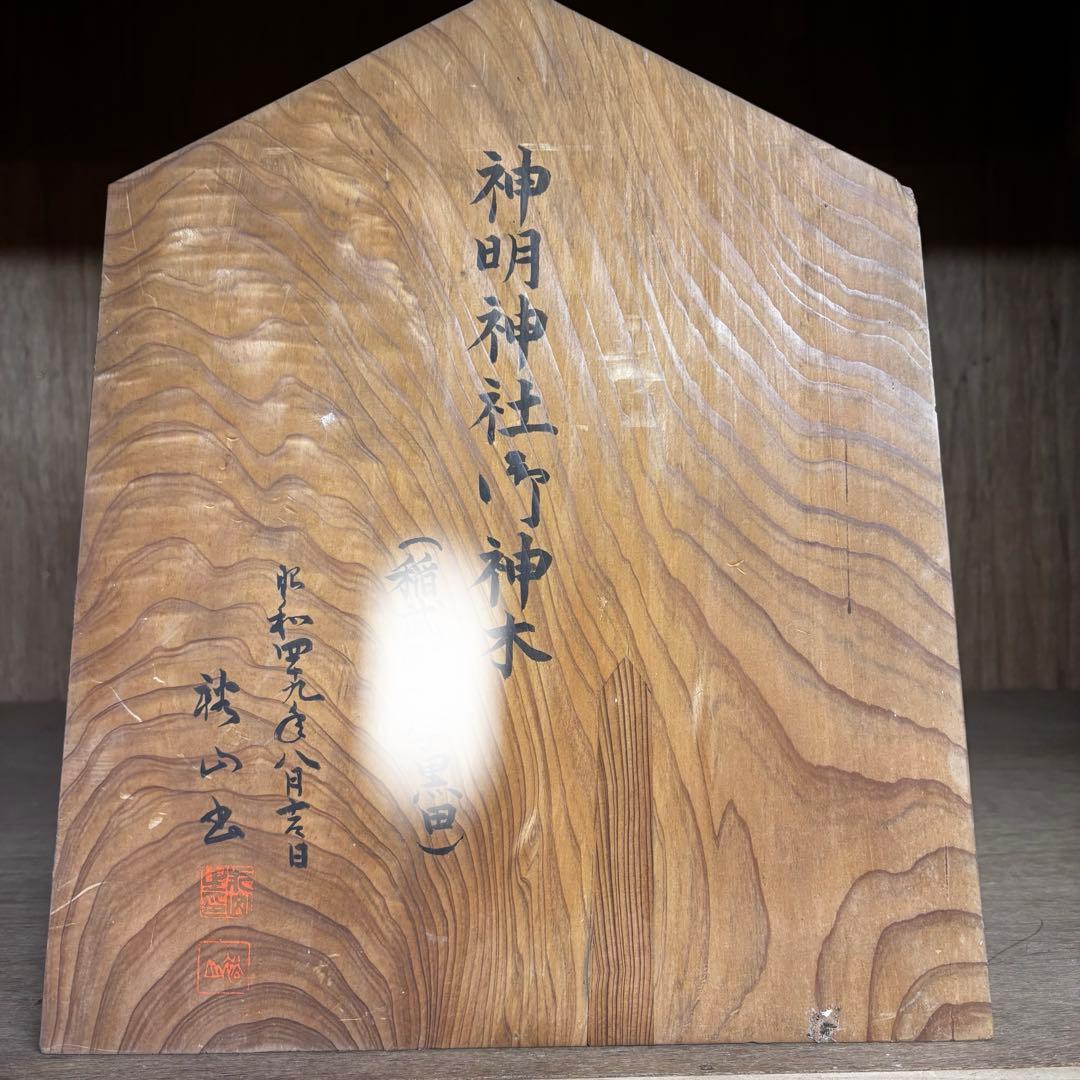 神明神社御神木
(稲武
黒田)
昭和四十九年八月吉日
裕山書